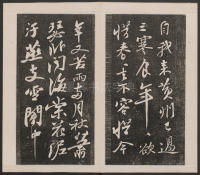 自我來黃州已過
三寒食年〻欲
惜春〻去不容惜今
年又苦雨兩月秋蕭
瑟臥聞海棠花泥
汙燕支雪闇中